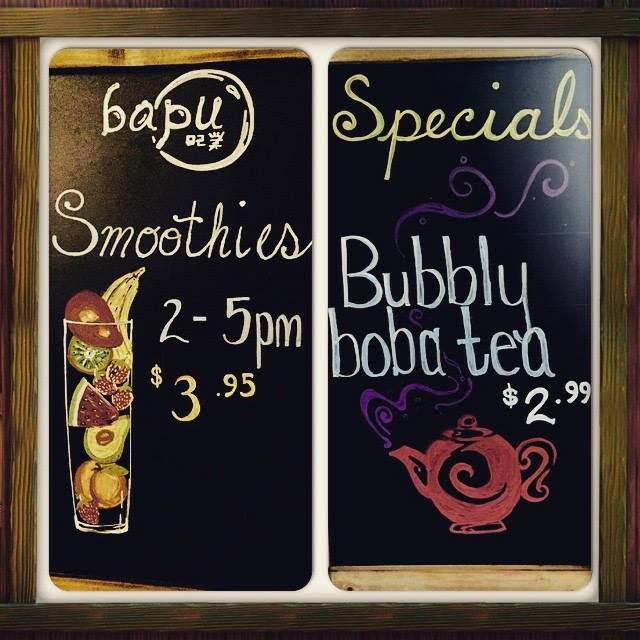 bapu
Smoothies
2-5pm
$3.95
Specials
Bubbly
boba tea
$2.99